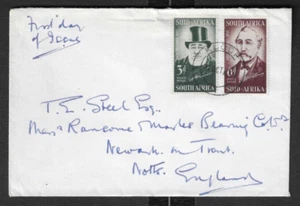 First day
of Issue
SUID-AFRIKA
SOUTH AFRICA
3d
SOUTH AFRICA
6d
SUID-AFRIKA
T. E. Steel Esq.,
Ransome & Marles Bearing Co. Ltd
Newark on Trent.
Notts. England